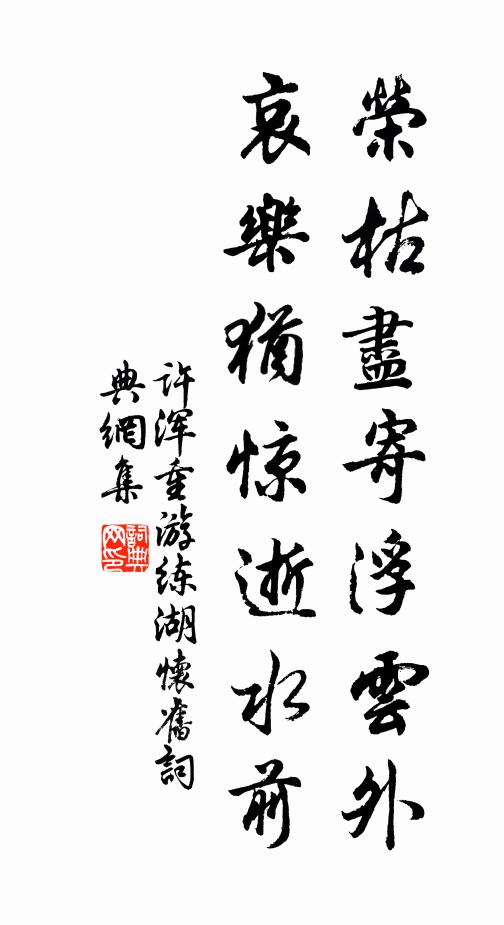 榮枯盡寄浮雲外
哀樂猶惊逝水前
许渾重游练湖懷舊詞
典網集
詞典
网印